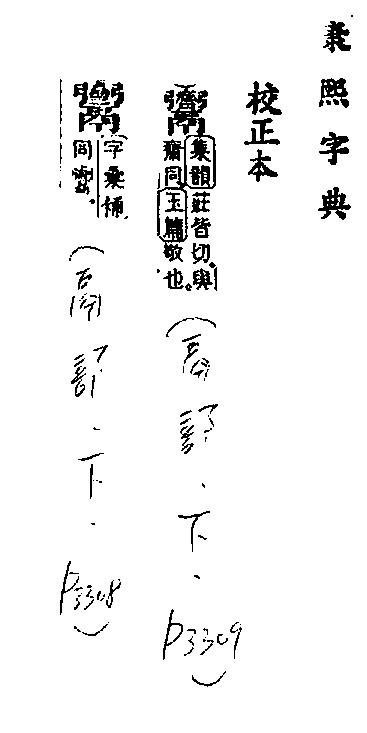 康熙字典
校正本
集韻莊皆切與
齋同玉篇敬也
(鬲部.下.P3309)
字彙補
同
(鬲部.下.P3308)